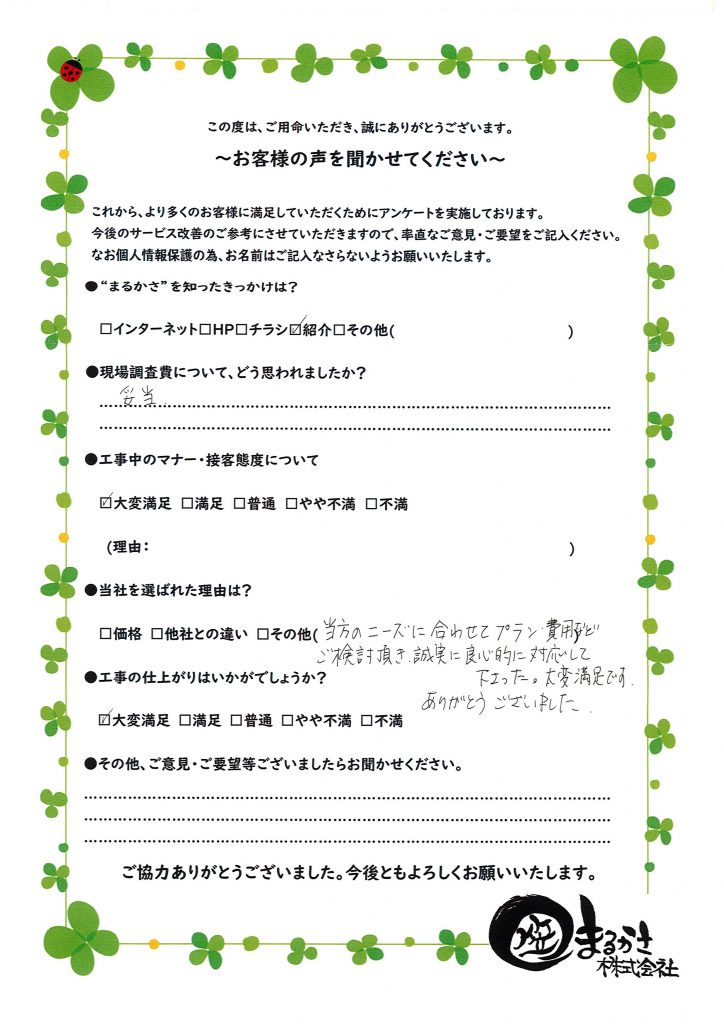 この度は、ご用命いただき、誠にありがとうございます。
～お客様の声を聞かせてください～
これから、より多くのお客様に満足していただくためにアンケートを実施しております。
今後のサービス改善のご参考にさせていただきますので、率直なご意見・ご要望をご記入ください。
なお個人情報保護の為、お名前はご記入なさらないようお願いいたします。
●“まるかさ”を知ったきっかけは？
□インターネット□HP□チラシ☑紹介□その他( )
●現場調査費について、どう思われましたか？
妥当
●工事中のマナー・接客態度について
☑大変満足 □満足 □普通 □やや不満 □不満
(理由： )
●当社を選ばれた理由は？
□価格 □他社との違い □その他(当方のニーズに合わせてプラン・費用など)
ご検討頂き、誠実に良心的に対応して
下さった。大変満足です。
ありがとうございました。
●工事の仕上がりはいかがでしょうか？
☑大変満足 □満足 □普通 □やや不満 □不満
●その他、ご意見・ご要望等ございましたらお聞かせください。
ご協力ありがとうございました。今後ともよろしくお願いいたします。
まるかさ
株式会社